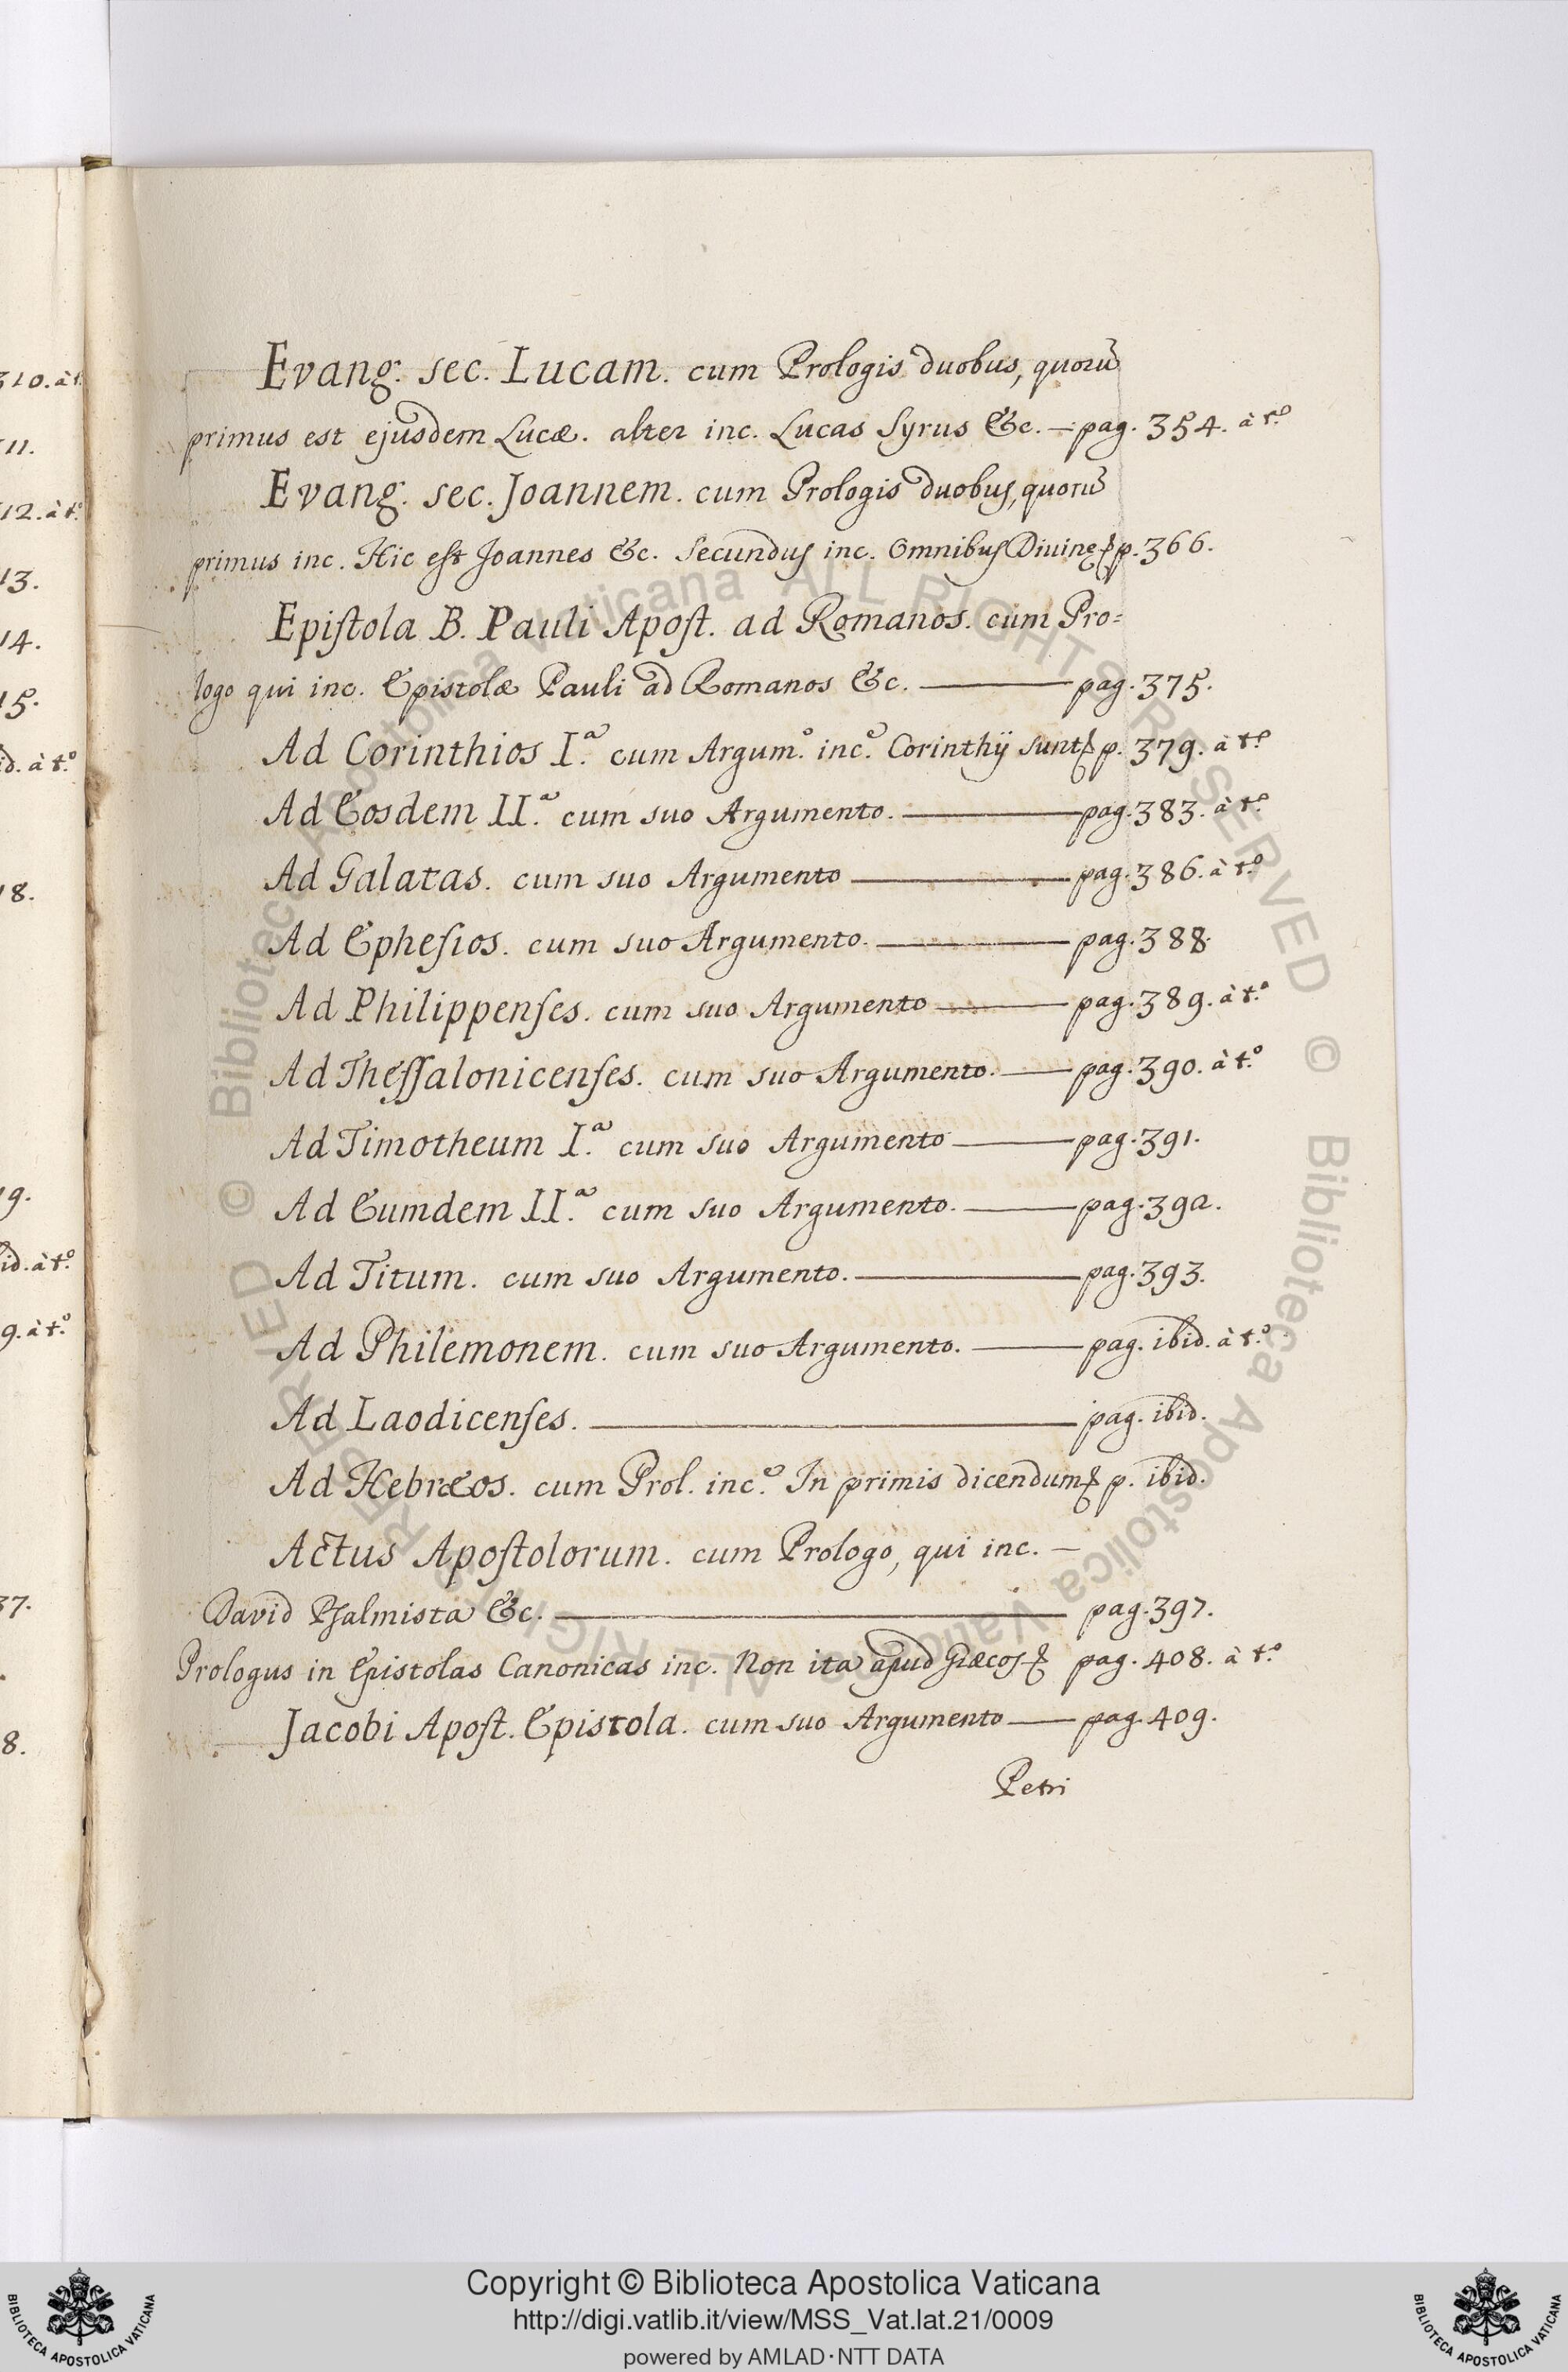 310. à t.
311.
312. à t.º
13.
14.
15.
id. à t.º
18.
19.
id. à t.º
9. à t.º
37.
8.
Evang. sec. Lucam. cum Prologis duobus, quorũ
primus est ejusdem Lucæ. alter inc. Lucas Syrus &c. — pag. 354. à t.º
Evang. sec. Joannem. cum Prologis duobus, quorũ
primus inc. Hic eſt Joannes &c. Secundus inc. Omnibus Divinę & p. 366.
Epiſtola B. Pauli Apoſt. ad Romanos. cum Pro=
logo qui inc. Epistolæ Pauli ad Romanos &c. — pag. 375.
Ad Corinthios I.ª cum Argum.º inc.e Corinthij sunt & p. 379. à t.º
Ad Eosdem II.ª cum suo Argumento. — pag. 383. à t.º
Ad Galatas. cum suo Argumento — pag. 386. à t.º
Ad Epheſios. cum suo Argumento. — pag. 388.
Ad Philippenſes. cum suo Argumento — pag. 389. à t.º
Ad Theſſalonicenſes. cum suo Argumento. — pag. 390. à t.º
Ad Timotheum I.ª cum suo Argumento — pag. 391.
Ad Eumdem II.ª cum suo Argumento. — pag. 392.
Ad Titum. cum suo Argumento. — pag. 393.
Ad Philemonem. cum suo Argumento. — pag. ibid. à t.º
Ad Laodicenſes. — pag. ibid.
Ad Hebræos. cum Prol. inc.e In primis dicendum & p. ibid.
Actus Apoſtolorum. cum Prologo, qui inc. —
David Pſalmista &c. — pag. 397.
Prologus in Epistolas Canonicas inc. Non ita apud Græcos & pag. 408. à t.º
Jacobi Apoſt. Epistola. cum suo Argumento — pag. 409.
Petri
© Biblioteca Apostolica Vaticana ALL RIGHTS RESERVED © Biblioteca Apostolica Vaticana ALL RIGHTS RESERVED
Copyright © Biblioteca Apostolica Vaticana
http://digi.vatlib.it/view/MSS_Vat.lat.21/0009
powered by AMLAD·NTT DATA
BIBLIOTECA APOSTOLICA VATICANA
BIBLIOTECA APOSTOLICA VATICANA